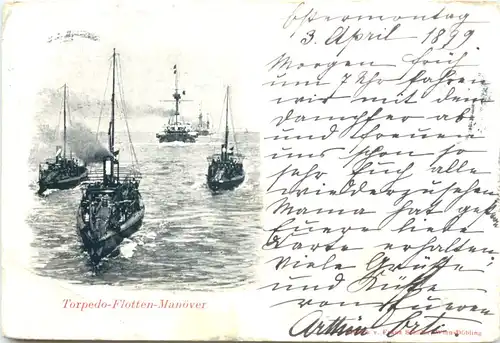 Ostermontag
3. April 1899
Morgen früh
um 7 Uhr fahren
wir mit dem
Dampfer ab
und freuen
uns schon so
sehr Euch alle
wiederzusehen
Mama hat
Euere liebe
Karte erhalten
Viele Grüße
und Küße
von Eueren
Arthur
Torpedo-Flotten-Manöver